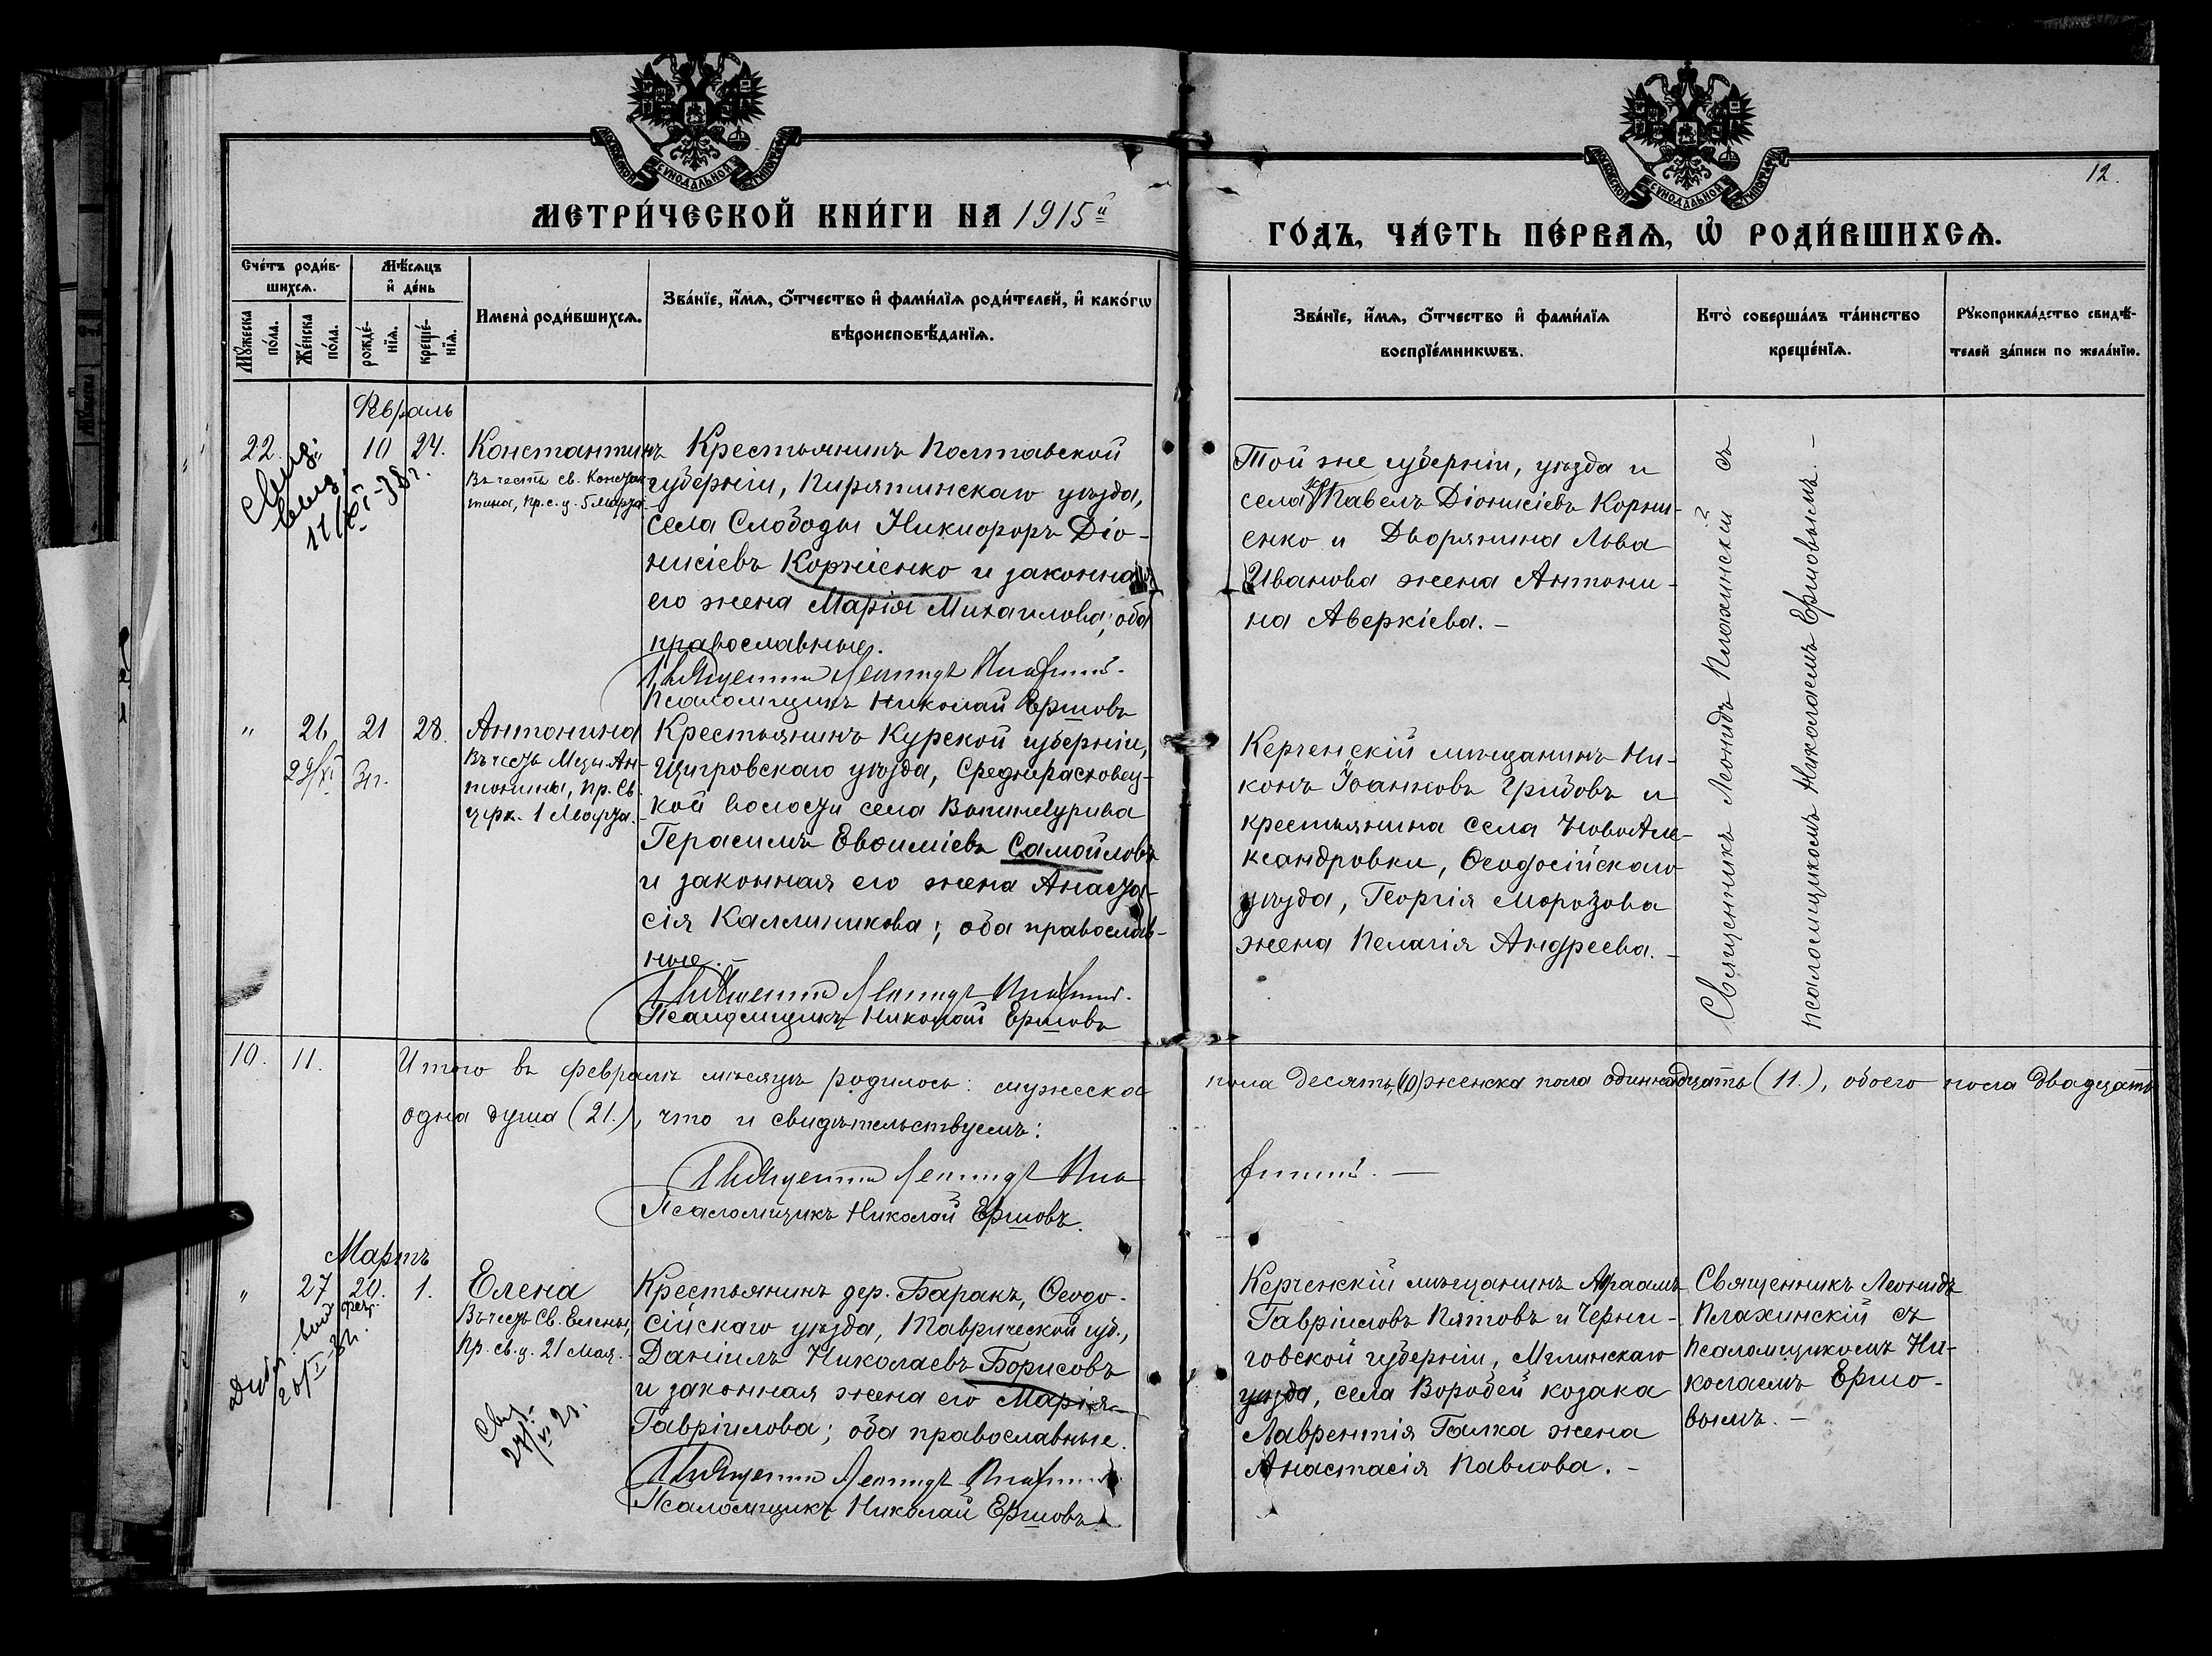 МОСКОВСКОЙ СѴНОДАЛЬНОЙ ТИПОГРАФІИ
МОСКОВСКОЙ СѴНОДАЛЬНОЙ ТИПОГРАФІИ
12.
МЕТРИ́ЧЕСКОЙ КНИ́ГИ НА 1915й
ГО́ДЪ, ЧА́СТЬ ПЕ́РВАѦ, Ѡ҆ РОДИ́ВШИХСѦ.
Сче́тъ роди́в-
шихсѧ.
Мѣ́сѧцъ
и҆ де́нь
Мꙋ́жеска
по́ла.
Же́нска
по́ла.
рожде́-
нїѧ.
креще́-
нїѧ.
Имена̀ роди́вшихсѧ.
Зва́нїе, и҆́мѧ, ѻ҆́тчество и҆ фами́лїѧ роди́телей, и҆ како́гѡ
вѣроисповѣ́данїѧ.
Зва́нїе, и҆́мѧ, ѻ҆́тчество и҆ фами́лїѧ
воспрїе́мникѡвъ.
Кто̀ соверша́лъ та́инство
креще́нїѧ.
Рꙋкоприкла́дство свидѣ́-
телей за́писи по жела́нїю.
Февраль
22. 10 24. Константинъ
Въ честь св. Конста
тина, пр. с. ц. 5 Марта
Крестьянинъ Полтавской
губерніи, Пирятинскаго уѣзда,
села Слободы Никифоръ Діо-
нисіевъ Корніенко и законная
его жена Марія Михаилова; оба
православные.
Священникъ Леонидъ Плахинскій.
Псаломщикъ Николай Ершовъ
Той же губерніи, уѣзда и
села Павелъ Діонисіевъ Корни-
енко и Дворянина Льва
Иванова жена Антони-
на Аверкіева. -
Священникъ Леонидъ Плахинскій съ
псаломщикомъ Николаемъ Ершовымъ. -
" 26 21 28. Антонина
29/XI 31г.
Въ честь Муч. Ан-
тонины, пр. св.
церк. 1 Марта. -
Крестьянинъ Курской губерніи,
Щигровскаго уѣзда,
кой волости села
Герасимъ Евѳиміевъ Самойловъ
и законная его жена Анаста-
сія Каллиникова; оба православ-
ные. -
Священникъ Леонидъ Плахинскій.
Псаломщикъ Николай Ершовъ
Керченскій мѣщанинъ Ни-
конъ Іоанновъ Грибовъ и
крестьянина села НовоАле-
ксандровки, Ѳеодосійскаго
уѣзда, Георгія Морозова
жена Пелагія Андреева. -
10. 11. Итого въ февралѣ мѣсяцѣ родилось: мужеска пола десять, (10) женска пола одиннадцать (11.), обоего пола двадцать
одна душа (21.), что и свидѣтельствуемъ:
Священникъ Леонидъ Плахинскій. -
Псаломщикъ Николай Ершовъ.
Мартъ
" 27 20. 1. Елена
фев.
Въ честь Св. Елены,
пр. св. ц. 21 Мая. -
Крестьянинъ дер. Баракъ, Ѳеодо-
сійскаго уѣзда, Таврической губ.,
Даніилъ Николаевъ Борисовъ
и законная жена его Марія
Гавріилова; оба православные.
Священникъ Леонидъ Плахинскій
Псаломщикъ Николай Ершовъ
Керченскій мѣщанинъ Авраамъ
Гавріиловъ Пятовъ и Черни-
говской губерніи, Мглинскаго
уѣзда, села Воробей козака
Лаврентія Галка жена
Анастасія Павлова. -
Священникъ Леонидъ
Плахинскій съ
Псаломщикомъ Ни-
колаемъ Ершо-
вымъ. -